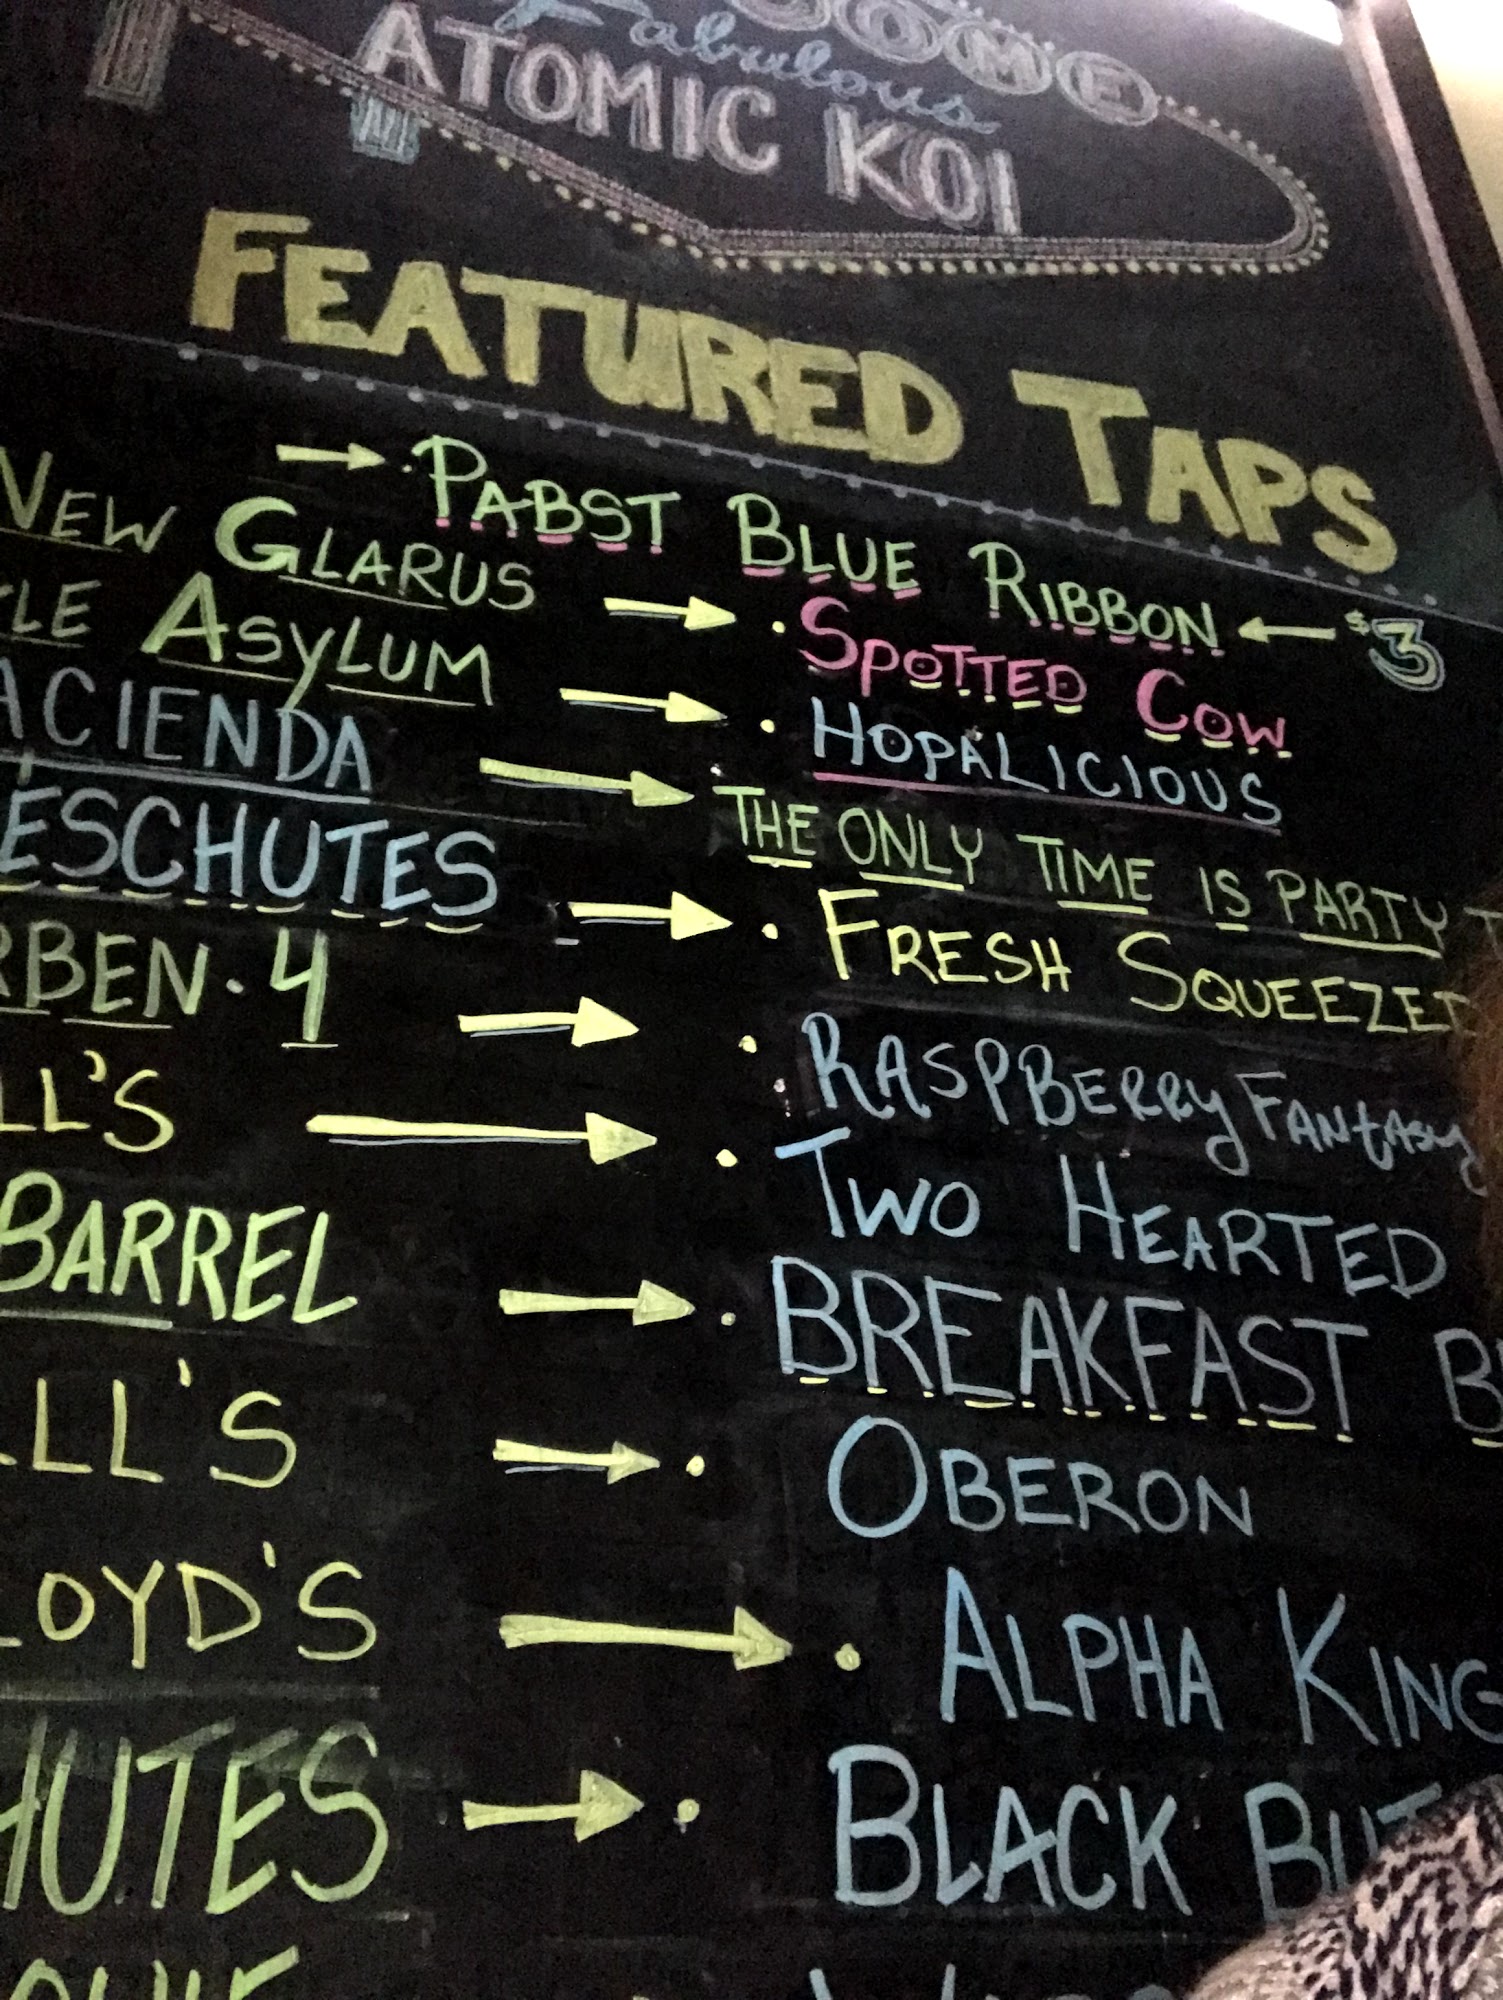 OME
Fabulous
ATOMIC KOI
FEATURED TAPS
PABST BLUE RIBBON $3
NEW GLARUS SPOTTED COW
LE ASYLUM HOPALICIOUS
ACIENDA THE ONLY TIME IS PARTY T
ESCHUTES FRESH SQUEEZE
RBEN·4 RASPBERRY FANTASY
LL'S TWO HEARTED
BARREL BREAKFAST B
LL'S OBERON
LOYD'S ALPHA KING
HUTES BLACK BUT